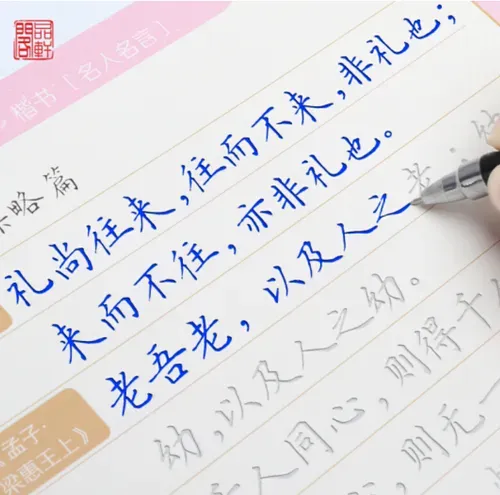 品軒閣
楷书「名人名言」
略篇
礼尚往来，往而不来，非礼也；
来而不往，亦非礼也。
老吾老，以及人之老；幼
幼，以及人之幼。
人同心，则得千
，则无一
孟子·
梁惠王上》